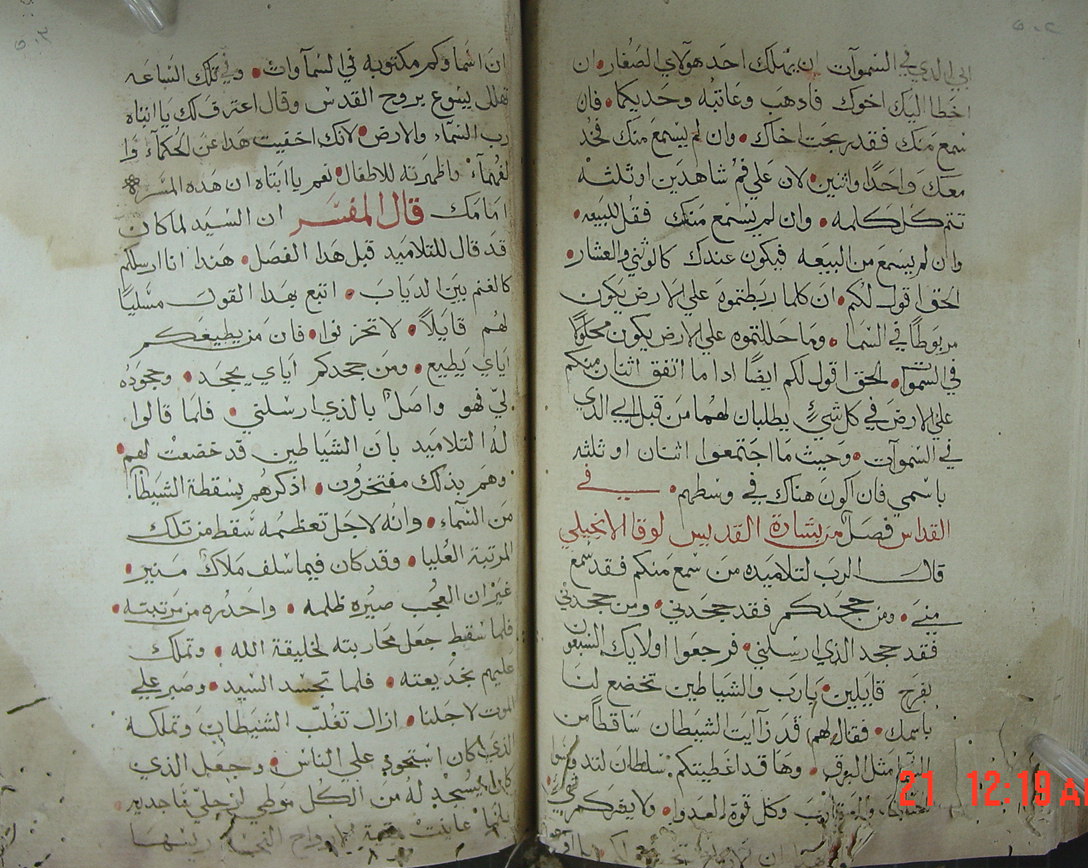 ابي الذي في السموات ان يهلك احد هولاي الصغار • ان
اخطا اليك اخوك فاذهب وعاتبه وحديكما • فان
سمع منك فقد ربحت اخاك • وان لم يسمع منك فخذ
معك واحدًا واثنين • لان علي فم شاهدين او ثلثه
تتم كل كلمه • وان لم يسمع منك فقل للبيعه •
وان لم يسمع من البيعه فيكون عندك كالوثني والعشار •
الحق اقول لكم • ان كلما ربطتموه علي الارض يكون
مربوطًا في السما • وما حللتموه علي الارض يكون محلولًا
في السموات • الحق اقول لكم ايضًا اذا ما اتفق اثنان منكم
علي الارض في كل شيء يطلبان لهما من قبل ابي الذي
في السموات • وحيث ما اجتمعوا اثنان او ثلثه
باسمي فان اكون هناك في وسطهم • في
القداس فصل من بشارة القديس لوقا الانجيلي
قال الرب لتلاميذه من سمع منكم فقد سمع
مني • ومن جحدكم فقد جحدني • ومن جحدني
فقد جحد الذي ارسلني • فرجعوا اولايك السبعون
بفرح قايلين • يارب والشياطين تخضع لنا
باسمك • فقال لهم قد رايت الشيطان ساقطًا من
السما مثل البرق • وها قد اعطيتكم سلطان لتدوسوا
وكل قوة العدو • ولا يضركم شي
ان اسماوكم مكتوبه في السماوات • وفي تلك الساعه
تهلل يسوع بروح القدس وقال اعترف لك يا ابتاه
رب السماء والارض • لانك اخفيت هذا عن الحكماء وا
لفهماء واظهرته للاطفال • نعم يا ابتاه ان هذه المسره
امامك قال المفسر ان السيد لما كان
قد قال للتلاميد قبل هذا الفصل • هندا انا ارسلكم
كالغنم بين الدياب • اتبع بهدا القول مسليًا
لهم قايلًا • لا تحزنوا • فان من يطيعكم
اياي يطيع • ومن جحدكم اياي يجحد • وجحوده
لي فهو واصل بالذي ارسلني • فلما قالوا
له التلاميد بان الشياطين قد خضعت لهم •
وهم بذلك مفتخرون • اذكرهم بسقطة الشيطان
من السماء • وانه لاجل تعظمه سقط من تلك
المرتبة العليا • وقد كان فيما سلف ملاك منير •
غير ان العجب صيره ظلمه • واحدره من مرتبته •
فلما سقط جعل محاربته لخليقة الله • وتملك
عليهم بخديعته • فلما تجسد السيد • وصبر علي
الموت لاجلنا • ازال تغلب الشيطان وتملكه
الذي كان استحوذ علي الناس • وجعل الذي
كان يسجد له من الكل موطي
21 12:19 AM